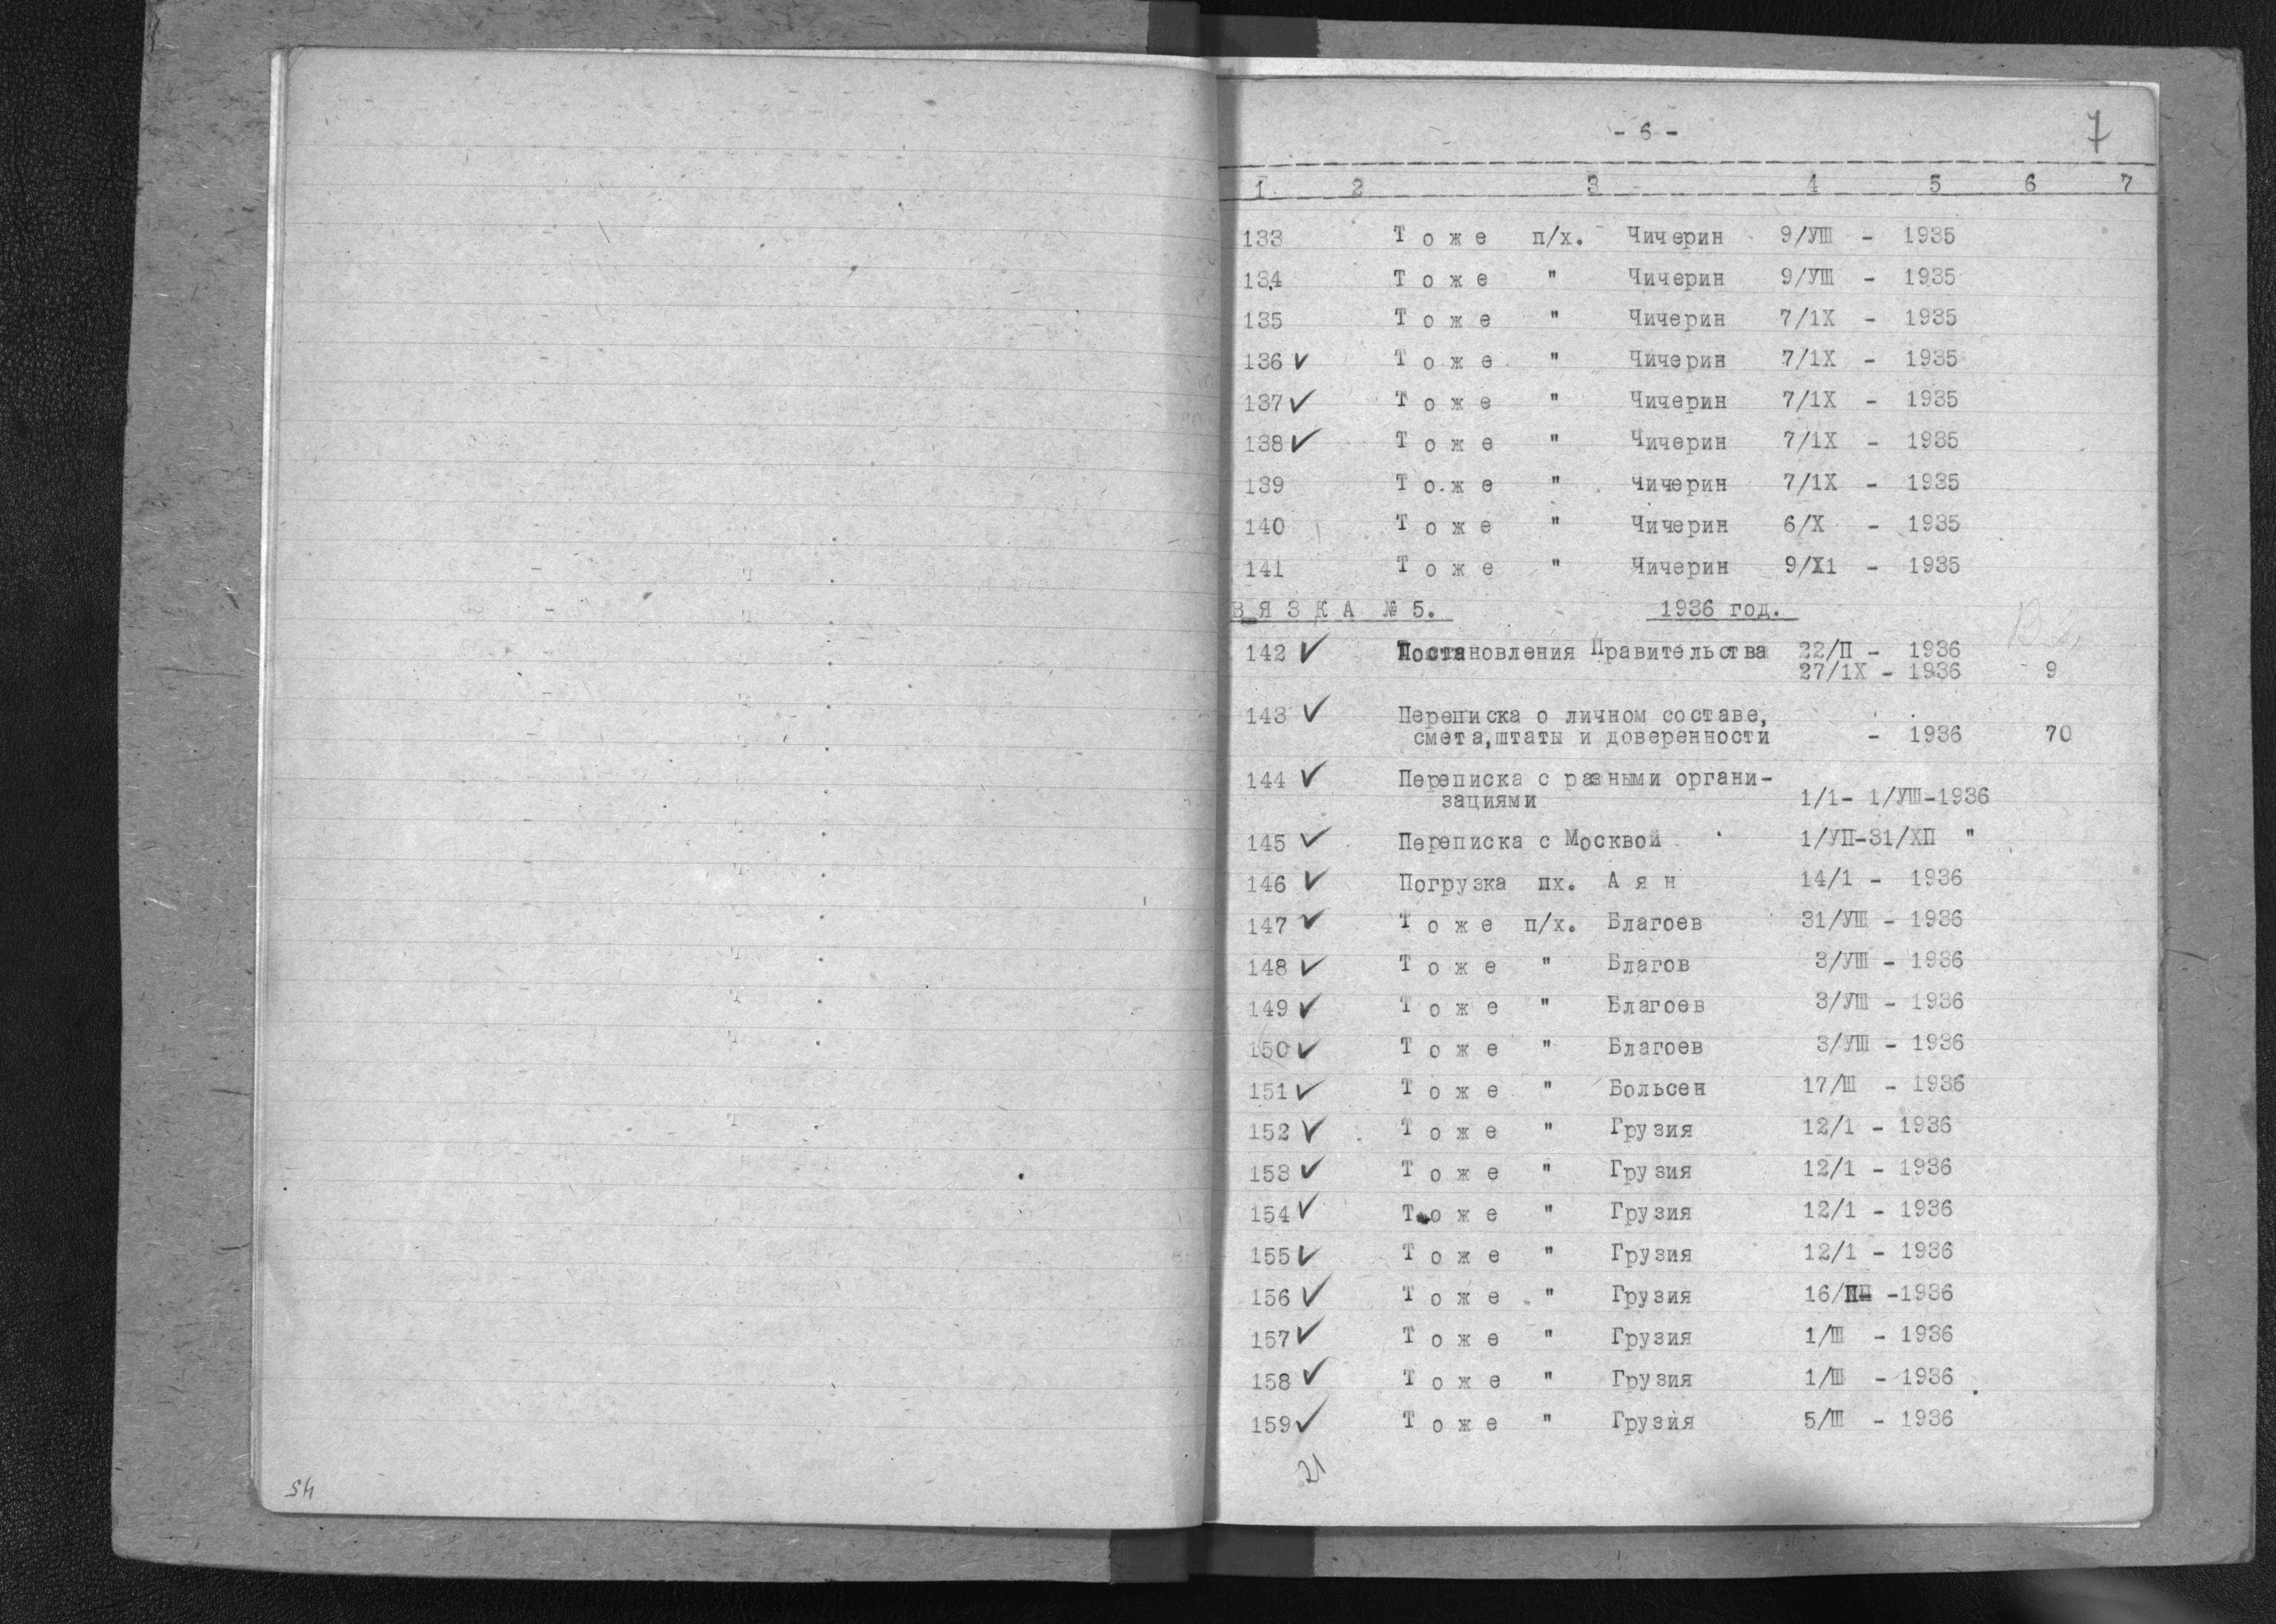 - 6 -
7
1 2 3 4 5 6 7
133 Тоже п/х. Чичерин 9/УШ - 1935
134 Тоже " Чичерин 9/УШ - 1935
135 Тоже " Чичерин 7/1Х - 1935
136 ✓ Тоже " Чичерин 7/1Х - 1935
137 ✓ Тоже " Чичерин 7/1Х - 1935
138 ✓ Тоже " Чичерин 7/1Х - 1935
139 Тоже " Чичерин 7/1Х - 1935
140 Тоже " Чичерин 6/Х - 1935
141 Тоже " Чичерин 9/Х1 - 1935
ВЯЗКА № 5. 1936 год.
142 ✓ Постановления Правительства 22/П - 1936
27/1Х - 1936 9
143 ✓ Переписка о личном составе,
смета,штаты и доверенности - 1936 70
144 ✓ Переписка с разными органи-
зациями 1/1- 1/УШ-1936
145 ✓ Переписка с Москвой 1/УП-31/ХП "
146 ✓ Погрузка пх. Аян 14/1 - 1936
147 ✓ Тоже п/х. Благоев 31/УШ - 1936
148 ✓ Тоже " Благов 3/УШ - 1936
149 ✓ Тоже " Благоев 3/УШ - 1936
150 ✓ Тоже " Благоев 3/УШ - 1936
151 ✓ Тоже " Больсен 17/Ш - 1936
152 ✓ Тоже " Грузия 12/1 - 1936
153 ✓ Тоже " Грузия 12/1 - 1936
154 ✓ Тоже " Грузия 12/1 - 1936
155 ✓ Тоже " Грузия 12/1 - 1936
156 ✓ Тоже " Грузия 16/ -1936
157 ✓ Тоже " Грузия 1/Ш - 1936
158 ✓ Тоже " Грузия 1/Ш - 1936
159 ✓ Тоже " Грузия 5/Ш - 1936
21